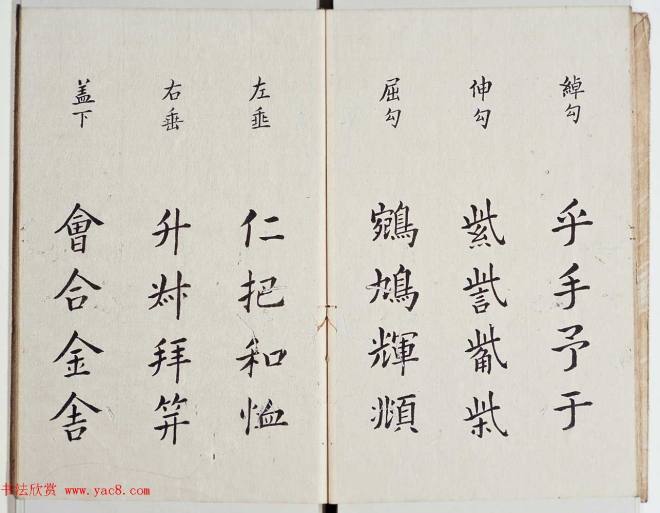 綽勾
乎手予于
伸勾
紫訾觜柴
屈勾
鵷鳩輝頫
左垂
仁把和恤
右垂
升叔拜笄
盖下
會合金舍
书法欣赏 www.yac8.com